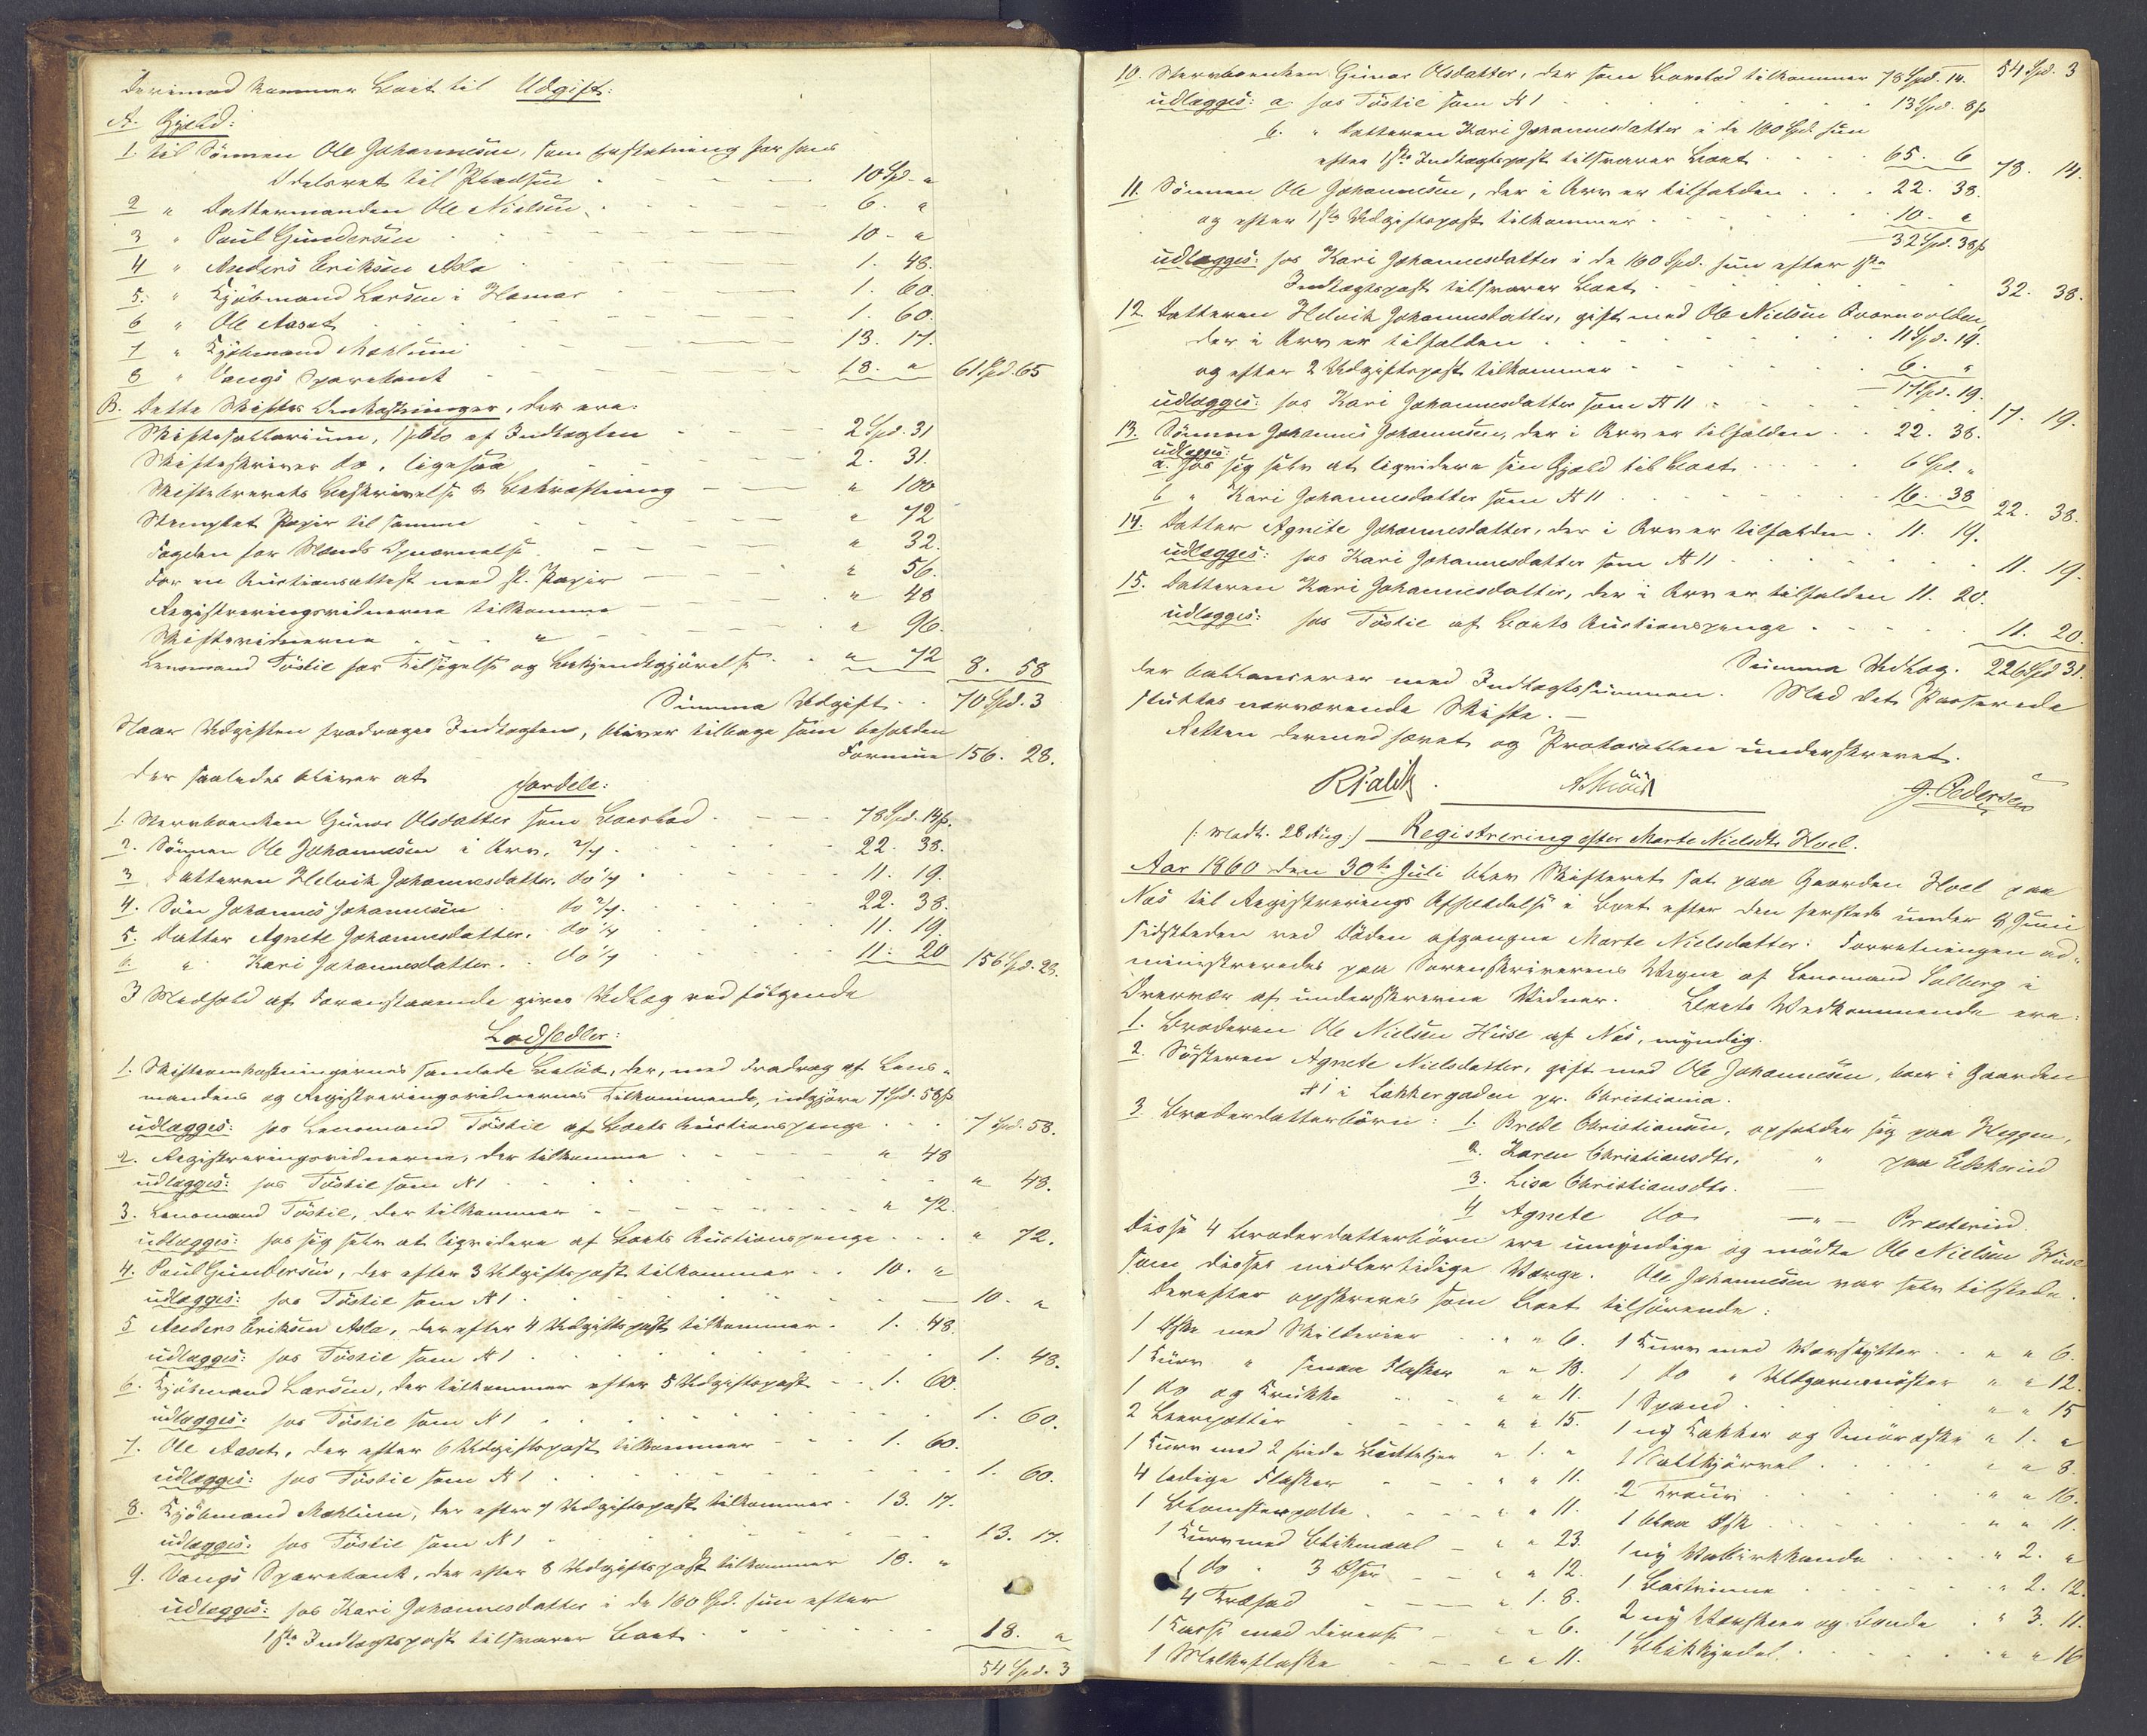 Derimod kommer Boet til Udgift:
A. Gjæld:
1. til Sönnen Ole Johannesen, som Erstatning for hans
Odelsret til Pladsen 10 Spd. "
2 " Dattermanden Ole Nielsen 6. "
3 " Poul Gundersen 10 - "
4 " Anders Eriksen Asla 1. 48.
5. " Kjöbmand Larsen i Hamar 1. 60.
6 " Ole Aaset 1. 60.
7 " Kjöbmand Mæhlum 13. 17.
8 " Vangs Sparebank 18. " 61 Spd. 65
B. Dette Skiftes Omkostninger, der ere:
Skiftesallarium, 1 pCto af Indtægten 2 Spd. 31
Skifteskriver do, ligesaa 2. 31.
Skiftebrevets Beskrivelse & Bekræftning " 100
Stemplet Papir til samme " 72
Fogden for Mænds Opnævnelse " 32.
For en Auctionsattest med st. Papir " 56.
Registreringsvidnerne tilkomme " 48
Skiftevidnerne " " 96.
Lensmand Töstie for Tilsigelse og Bekjendtgjörelse " 72 8. 58
Summa Udgift 70 Spd. 3
Naar Udgiften fradrages Indtægten, bliver tilbage som beholden
Formue 156. 28.
der saaledes bliver at fordele:
1. Stervboenken Gunor Olsdatter som Boeslod 78 Spd. 14 s.
2. Sönnen Ole Johannesen i Arv, 2/7 22. 38.
3 Datteren Helvik Johannesdatter do 1/7 11. 19.
4. Sön Johannes Johannesen do 2/7. 22. 38.
5. Datter Agnete Johannesdatter. do 1/7 11. 19.
6. " Kari Johannesdatter. do 1/7 11. 20 156 Spd. 28.
I Medhold af Foranstaaende gives Udlæg ved fölgende
Lodsedler:
1. Skifteomkostningernes samlede Belöb, der, med Fradrag af Lens-
mandens og Registreringsvidnernes Tilkommende, udgjöre 7 Spd. 58 s
udlægges: hos Lensmand Töstie af Boets Auctionspenge 7 Spd. 58.
2. Registreringsvidnerne, der tilkomme " 48
udlægges: hos Töstie som N 1 " 48.
3. Lensmand Töstie, der tilkommer " 72.
udlægges: hos sig selv at liqvidere af Boets Auctionspenge " 72.
4. Poul Gundersen, der efter 3 Udgiftspost tilkommer 10. "
udlægges: hos Töstie som N 1 10. "
5 Anders Eriksen Asla, der efter 4 Udgiftspost tilkommer 1. 48.
udlægges: hos Töstie som N 1 1. 48.
6. Kjöbmand Larsen, der tilkommer efter 5 Udgiftspost 1. 60.
udlægges: hos Töstie som N 1 1. 60.
7. Ole Aaset, der efter 6 Udgiftspost tilkommer 1. 60.
udlægges: hos Töstie som N 1 1. 60.
8. Kjöbmand Mæhlum, der efter 7 Udgiftspost tilkommer 13. 17.
udlægges: hos Töstie som N 1 13. 17.
9. Vangs Sparebank, der efter 8 Udgiftspost tilkommer 18. "
udlægges: hos Kari Johannesdatter i de 160 Spd. hun efter
1ste Indtægtspost tilsvarer Boet 18. "
54 Spd. 3
54 Spd. 3
10. Stervboenken Gunor Olsdatter, der som Boeslod tilkommer 78 Spd. 14.
udlægges: a. hos Töstie som N 1 13 Spd. 8 s
b. " Datteren Kari Johannesdatter i de 160 Spd. hun
efter 1ste Indtægtspost tilsvarer Boet 65. 6 78. 14.
11. Sönnen Ole Johannesen, der i Arv er tilfalden 22. 38.
og efter 1ste Udgiftspost tilkommer 10. "
32 Spd. 38 s
udlægges: hos Kari Johannesdatter i de 160 Spd. hun efter 1ste
Indtægtspost tilsvarer Boet 32. 38.
12. Datteren Helvik Johannesdatter, gift med Ole Nielsen Qværnvolden,
der i Arv er tilfalden 11 Spd. 19.
og efter 2 Udgiftspost tilkommer 6. "
17 Spd. 19.
udlægges: hos Kari Johannesdatter som N 11 17. 19.
13. Sönnen Johannes Johannesen, der i Arv er tilfalden 22. 38.
udlægges:
a. hos sig selv at liqvidere sin Gjæld til Boet 6 Spd. "
b " Kari Johannesdatter som N 11 16. 38 22. 38.
14. Datter Agnete Johannesdatter, der i Arv er tilfalden 11. 19.
udlægges: hos Kari Johannesdatter som N 11 11. 19.
15. Datteren Kari Johannesdatter, der i Arv er tilfalden 11. 20.
udlægges: hos Töstie af Boets Auctionspenge 11. 20.
Summa Udlæg. 226 Spd 31.
der ballancerer med Indtægtssummen. Med det Passerede
sluttes nærværende Skifte.
Retten dermed hævet og Protocollen underskrevet.
G. Pedersen
(: Modt. 28 Aug:) Registrering efter Marte Nielsdtr Hoel.
Aar 1860 den 30te Juli blev Skifteret sat paa Gaarden Hoel paa
Næs til Registrerings Afholdelse i Boet efter den herstede under 8 Juni
sidstleden ved Döden afgangne Marte Nielsdatter: Forretningen ad-
ministreredes paa Sorenskriverens Vegne af Lensmand Solberg i
Overvær af underskrevne Vidner. Boets Vedkommende ere:
1. Broderen Ole Nielsen Huse af Næs, myndig.
2. Sösteren Agnete Nielsdatter, gift med Ole Johannesen, boer i Gaarden
N 1 i Lakkergaden pr. Christiania.
3 Broderdatterbörn: 1. Brede Christiansen, opholder sig paa Heggen,
2. Karen Christiansdtr, " paa
3. Lisa Christiansdtr. —
4 Agnete do —"— Præsterud.
Disse 4 Broderdatterbörn ere umyndige og mödte Ole Nielsen Huse
som disses midlertidige Værge. Ole Johannesen var selv tilstede.
Derefter opskreves som Boet tilhörende:
1 Æske med Skilderier " " 6. 1 Kurv med " " 6.
1 Kurv " smaa Flasker " " 18. 1 do " Uldgarnsnöster " " 12.
1 do og Krukke " " 11. 1 Spand " " 15
2 Leerpotter " " 15. 1 ny Lakker og Smöræske " 1. "
1 Kurv med 2 hvide " 1. " 1 Saltkjörrel " " 8.
4 ledige Flasker " " 11. 2 " " 16.
1 Blomsterpotte " " 11. 1 blaa Æsk " " 11.
1 Kurv med Blikmaal " " 23. 1 ny " 2. "
1 do " 3 Öser " " 12. 1 " 2. 12.
4 Træfad " 1. 8. 2 ny og " 3. 11.
1 Kasse med diverse " " 6. 1 Blikkjedel " " 16
1 Melkeflaske " " 11.